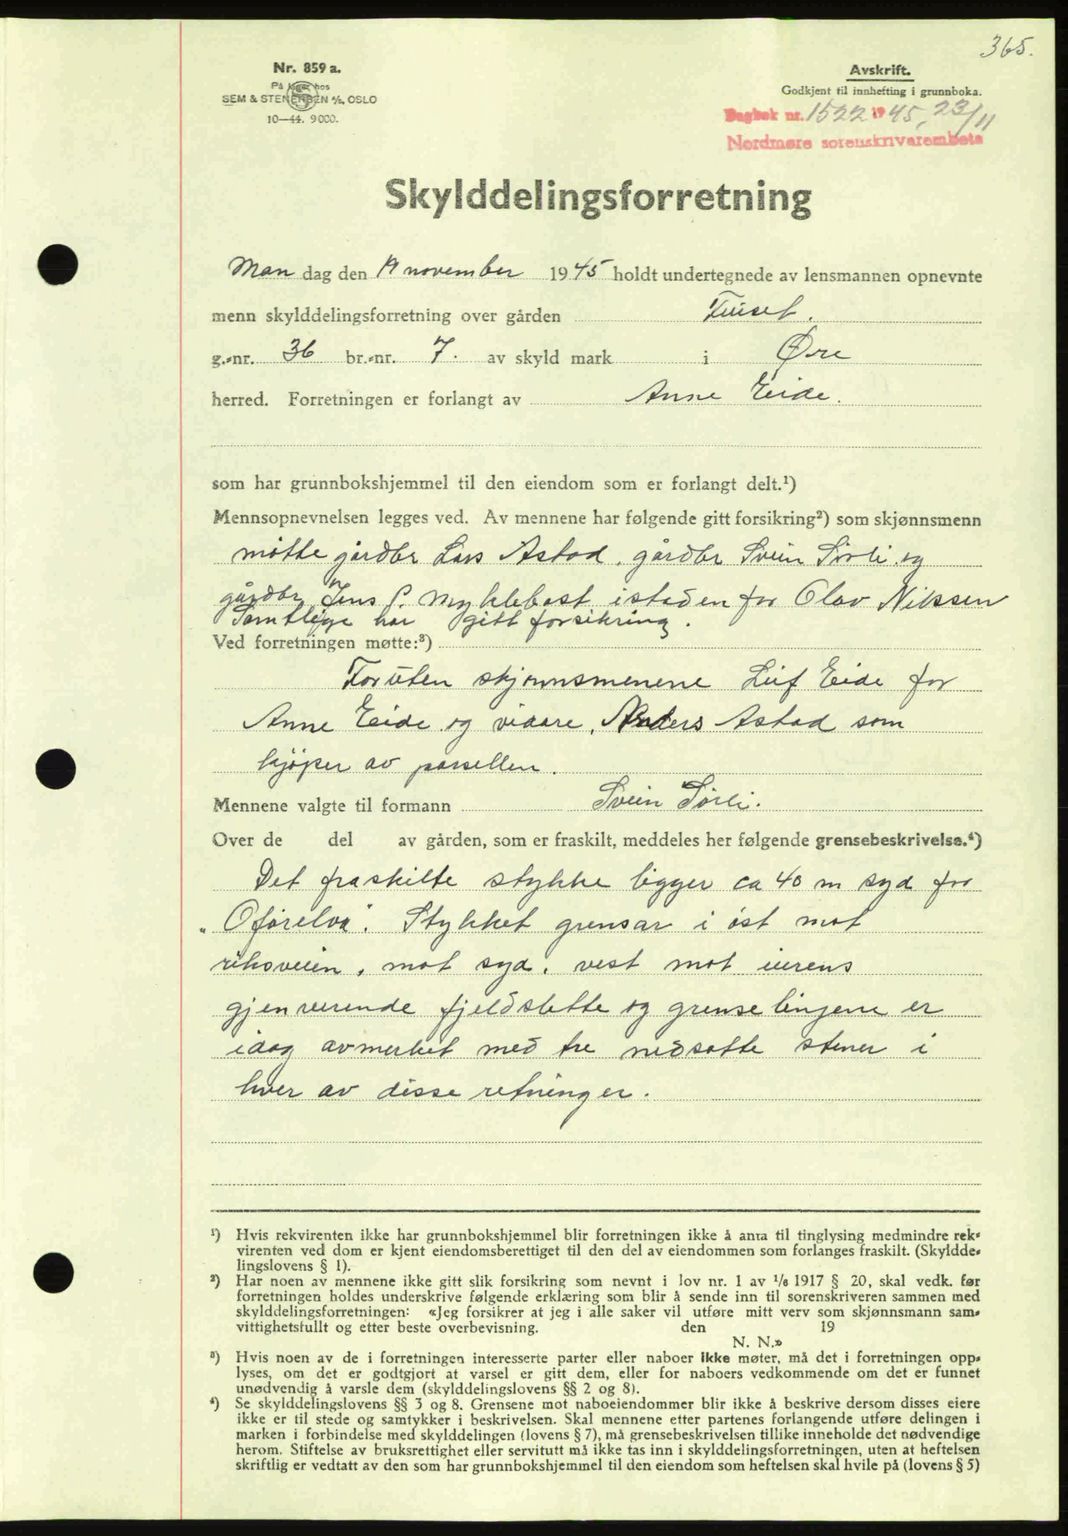 365.
Nr. 859 a.
På lager hos
SEM & STENERSEN A/S, OSLO
10—44. 9000.
Avskrift.
Godkjent til innhefting i grunnboka.
Dagbok nr. 1522 1945, 23/11
Nordmøre sorenskrivarembete
Skylddelingsforretning
Man dag den 19 november 1945 holdt undertegnede av lensmannen opnevnte
menn skylddelingsforretning over gården Fuset.
g.-nr. 36 br.-nr. 7. av skyld mark i Øre
herred. Forretningen er forlangt av Anne Eide.
som har grunnbokshjemmel til den eiendom som er forlangt delt.¹)
Mennsopnevnelsen legges ved. Av mennene har følgende gitt forsikring²) som skjønnsmenn
møtte gårdbr Lars Astad, gårdbr Svein Sørli og
gårdbr Jens P. Myklebost istaden for Olav Nilssen
Samtlige har gitt forsikring.
Ved forretningen møtte:³)
Foruten skjønnsmenene Leif Eide for
Anne Eide og vidare, Anders Astad som
kjøper av parsellen.
Mennene valgte til formann Svein Sørli.
Over de del av gården, som er fraskilt, meddeles her følgende grensebeskrivelse.⁴)
Det fraskilte stykke ligger ca 40 m syd for
"Oførelva". Stykket grensar i øst mot
riksveien, mot syd, vest mot eierens
gjenverende fjeldslette og grenselinjene er
idag avmerket med tre nedsatte stener i
hver av disse retninger.
¹) Hvis rekvirenten ikke har grunnbokshjemmel blir forretningen ikke å anta til tinglysing medmindre rek-
virenten ved dom er kjent eiendomsberettiget til den del av eiendommen som forlanges fraskilt. (Skyldde-
lingslovens § 1).
²) Har noen av mennene ikke gitt slik forsikring som nevnt i lov nr. 1 av 1/6 1917 § 20, skal vedk. før
forretningen holdes underskrive følgende erklæring som blir å sende inn til sorenskriveren sammen med
skylddelingsforretningen: «Jeg forsikrer at jeg i alle saker vil utføre mitt verv som skjønnsmann sam-
vittighetsfullt og etter beste overbevisning. den 19
N. N.»
³) Hvis noen av de i forretningen interesserte parter eller naboer ikke møter, må det i forretningen opp-
lyses, om det er godtgjort at varsel er gitt dem, eller for naboers vedkommende om det er funnet
unødvendig å varsle dem (skylddelingslovens §§ 2 og 8).
⁴) Se skylddelingslovens §§ 3 og 8. Grensene mot naboeiendommer blir ikke å beskrive dersom disses eiere
ikke er til stede og samtykker i beskrivelsen. Skal mennene etter partenes forlangende utføre delingen i
marken i forbindelse med skylddelingen (lovens § 7), må grensebeskrivelsen tillike inneholde det nødvendige
herom. Stiftelse av bruksrettighet eller servitutt må ikke tas inn i skylddelingsforretningen, uten at heftelsen
skriftlig er vedtatt av den som har grunnbokshjemmel til den eiendom som heftelsen skal hvile på (lovens § 5)